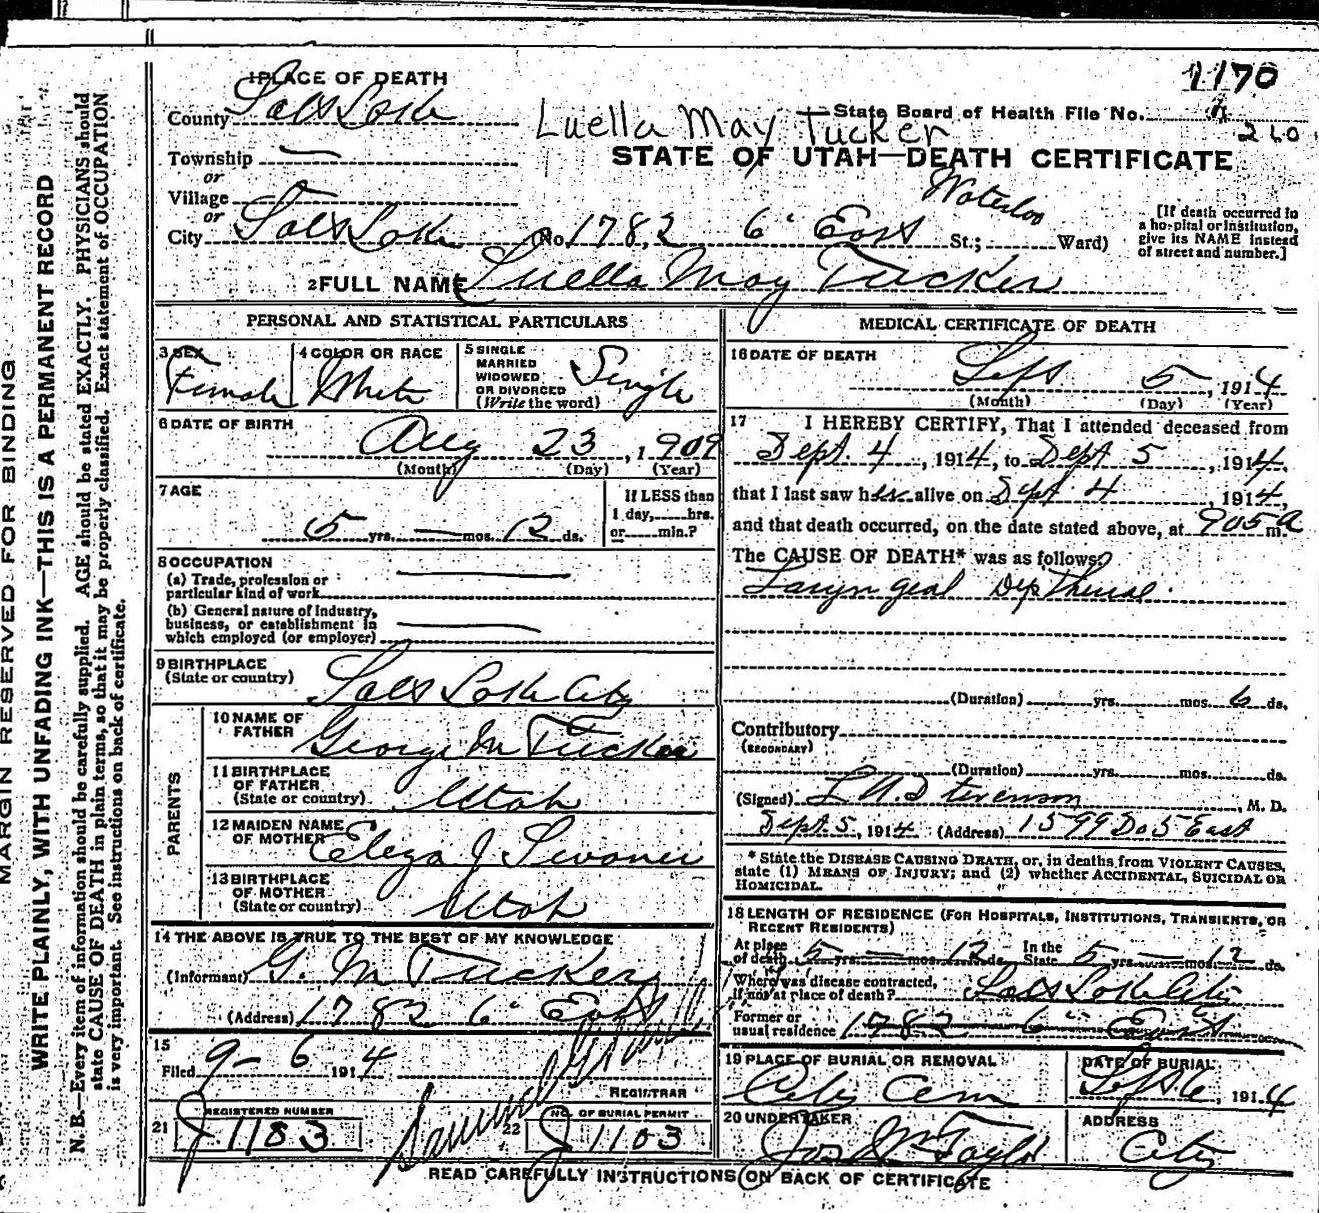 1170
1 PLACE OF DEATH
County Salt Lake
Luella May Tucker
State Board of Health File No.
260
Township —
or
STATE OF UTAH—DEATH CERTIFICATE
Village
or
Waterloo
City Salt Lake No. 1782 6" East St.; Ward)
[If death occurred in
a hospital or institution,
give its NAME instead
of street and number.]
2 FULL NAME Luella May Tucker
PERSONAL AND STATISTICAL PARTICULARS
3 SEX
Female
4 COLOR OR RACE
White
5 SINGLE
MARRIED
WIDOWED
OR DIVORCED
(Write the word)
Single
6 DATE OF BIRTH
Aug 23, 1909
(Month) (Day) (Year)
7 AGE
5 yrs. — mos. 12 ds.
If LESS than
1 day, hrs.
or min.?
8 OCCUPATION
(a) Trade, profession or
particular kind of work
(b) General nature of industry,
business, or establishment in
which employed (or employer)
9 BIRTHPLACE
(State or country)
Salt Lake City
PARENTS
10 NAME OF
FATHER
George M Tucker
11 BIRTHPLACE
OF FATHER
(State or country)
Utah
12 MAIDEN NAME
OF MOTHER
Eliza J
13 BIRTHPLACE
OF MOTHER
(State or country)
Utah
14 THE ABOVE IS TRUE TO THE BEST OF MY KNOWLEDGE
(Informant) G. M Tucker
(Address) 1782 6" East
15
Filed 9-6 1914
REGISTRAR
21 REGISTERED NUMBER
J 1183
22 NO. OF BURIAL PERMIT
J 1103
MEDICAL CERTIFICATE OF DEATH
16 DATE OF DEATH
Sept 5, 1914
(Month) (Day) (Year)
17 I HEREBY CERTIFY, That I attended deceased from
Sept. 4, 1914, to Sept 5, 1914,
that I last saw her alive on Sept 4, 1914,
and that death occurred, on the date stated above, at 905 a m.
The CAUSE OF DEATH* was as follows:
Laryngeal
(Duration) yrs. mos. 6 ds.
Contributory
(SECONDARY)
(Duration) yrs. mos. ds.
(Signed) Stevenson, M. D.
Sept. 5, 1914 (Address) 1599 So 5 East
* State the DISEASE CAUSING DEATH, or, in deaths from VIOLENT CAUSES,
state (1) MEANS OF INJURY; and (2) whether ACCIDENTAL, SUICIDAL OR
HOMICIDAL.
18 LENGTH OF RESIDENCE (FOR HOSPITALS, INSTITUTIONS, TRANSIENTS, OR
RECENT RESIDENTS)
At place
of death 5 yrs. — mos. 12 ds.
In the
State 5 yrs. — mos. 12 ds.
Where was disease contracted,
if not at place of death? Salt Lake City
Former or
usual residence 1782 6" East
19 PLACE OF BURIAL OR REMOVAL
City Cem
DATE OF BURIAL
Sept 6, 1914
20 UNDERTAKER
Jos Wm Taylor
ADDRESS
City
READ CAREFULLY INSTRUCTIONS ON BACK OF CERTIFICATE
MARGIN RESERVED FOR BINDING
WRITE PLAINLY, WITH UNFADING INK—THIS IS A PERMANENT RECORD
N. B.—Every item of information should be carefully supplied. AGE should be stated EXACTLY. PHYSICIANS should
state CAUSE OF DEATH in plain terms, so that it may be properly classified. Exact statement of OCCUPATION
is very important. See instructions on back of certificate.